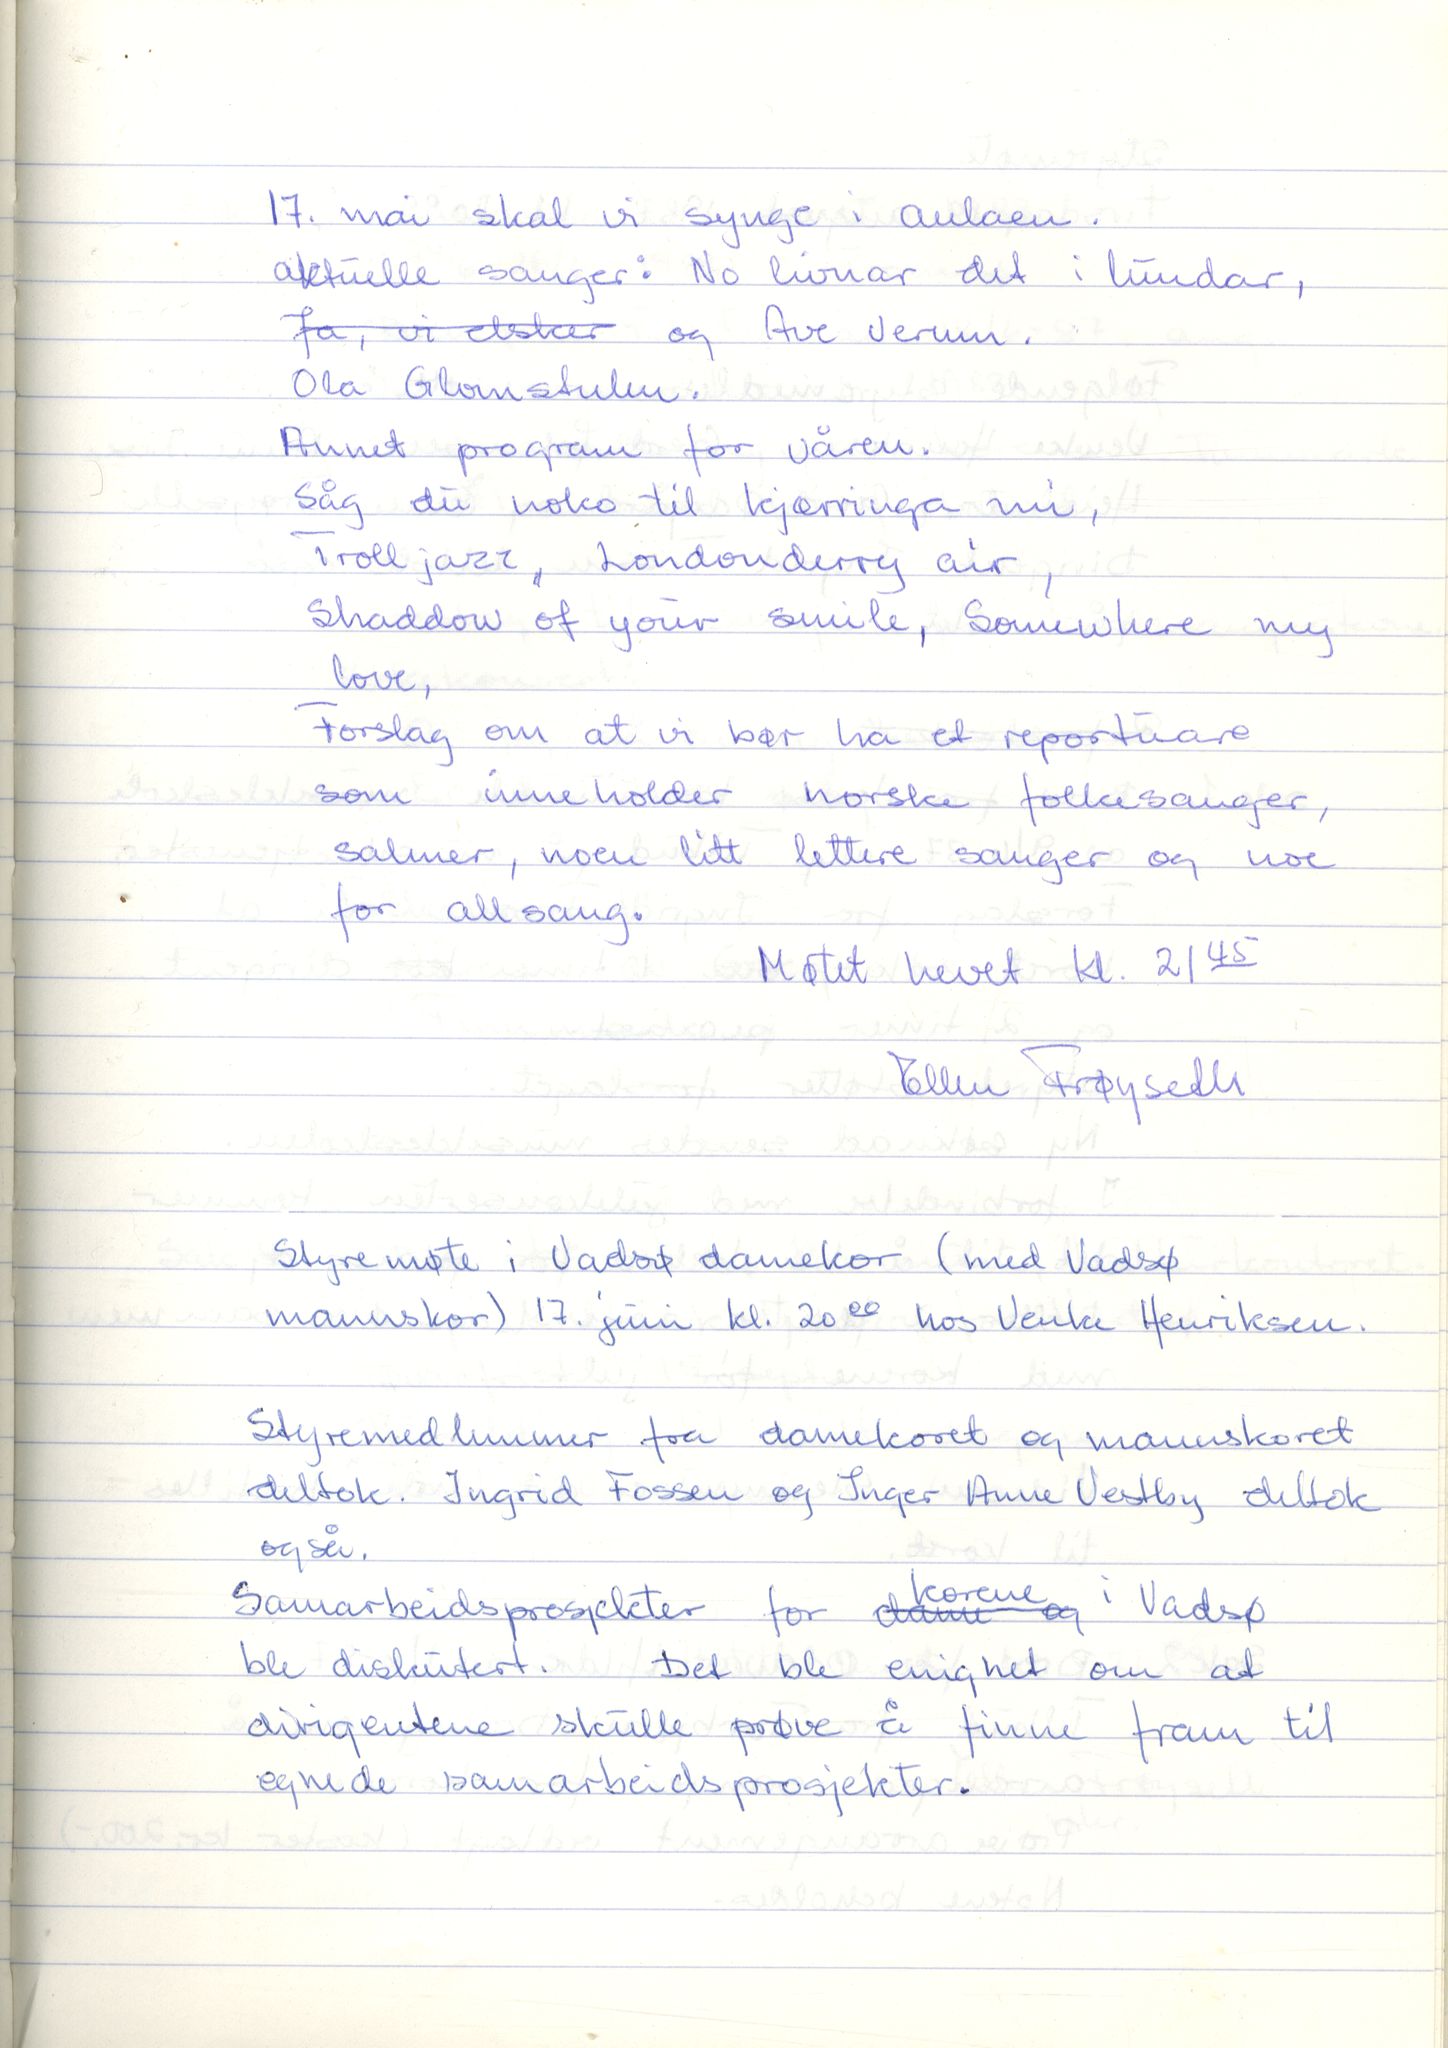 17. mai skal vi synge i aulaen.
aktuelle sanger: No livnar det i lundar,
Ja, vi elsker og Ave Verum.
Ola Glomstulen.
Annet program for våren.
Såg du noko til kjærringa mi,
Trolljazz, Londonderry air,
Shaddow of your smile, Somewhere my
love,
Forslag om at vi bør ha et reportuare
som inneholder norske folkesanger,
salmer, noen litt lettere sanger og noe
for allsang.
Møtet hevet kl. 21 45
Ellen Frøyseth
Styremøte i Vadsø damekor (med Vadsø
mannskor) 17. juni kl. 20 00 hos Venke Henriksen.
Styremedlemmer fra damekoret og mannskoret
deltok. Ingrid Fossen og Inger Anne Vestby deltok
også.
Samarbeidsprosjekter for dame og korene i Vadsø
ble diskutert. Det ble enighet om at
dirigentene skulle prøve å finne fram til
egnede samarbeidsprosjekter.